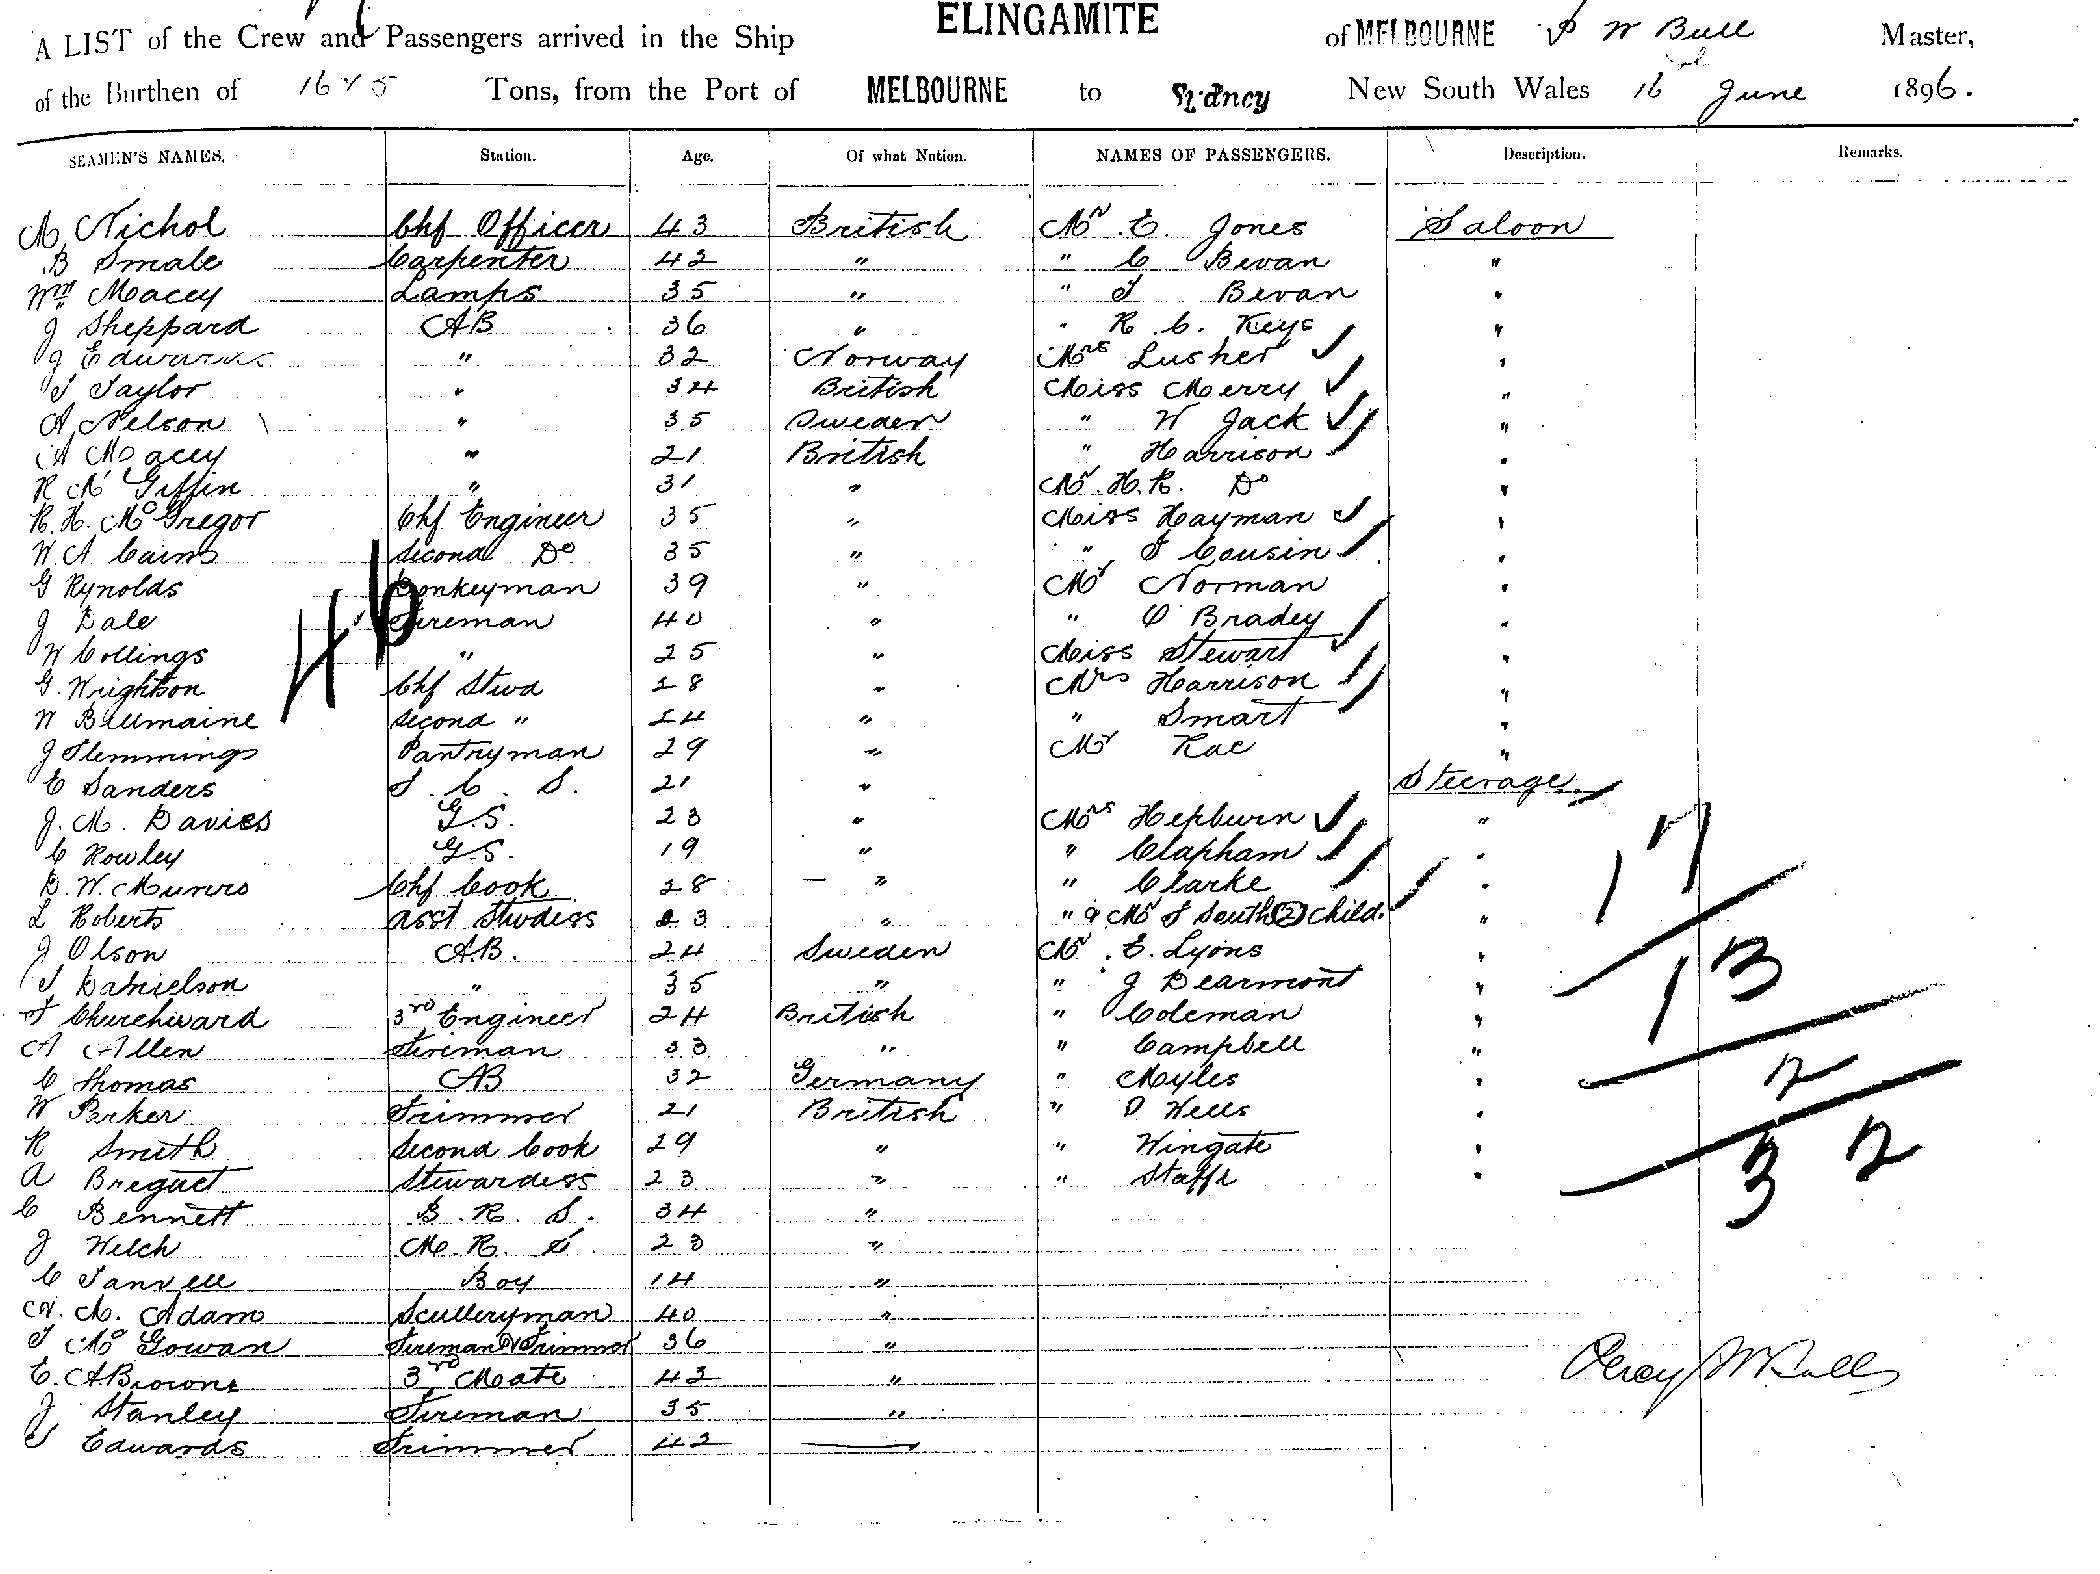 A LIST of the Crew and Passengers arrived in the Ship ELINGAMITE of MELBOURNE P W Bull Master,
of the Burthen of 1675 Tons, from the Port of MELBOURNE to Sydney New South Wales 16 June 1896.
SEAMEN'S NAMES. Station. Age. Of what Nation. NAMES OF PASSENGERS. Description. Remarks.
A Nichol Chf Officer 43 British Mr E. Jones Saloon
B Smale Carpenter 42 " " C Bevan "
Wm Macey Lamps 35 " " T Bevan "
J Sheppard AB 36 " " R. C. Keys "
J Edwards " 32 Norway Mrs Lusher "
T Taylor " 34 British Miss Merry "
A Nelson " 35 Sweden " W Jack "
A Macey " 21 British " Harrison "
R Mc Giffin " 31 " Mr. H. R. Do "
R. H. McGregor Chf Engineer 35 " Miss Hayman "
W A Cairns Second Do 35 " " T Cousin "
G Rynolds Donkeyman 39 " Mr Norman "
J Dale Fireman 40 " " O'Bradey "
W Collings " 25 " Miss Stewart "
G. Wrightson Chf Stwd 28 " Mrs Harrison "
W Bellmaine Second " 24 " " Smart "
J Flemmings Pantryman 29 " Mr Rae "
E Sanders F. C. S. 21 " Steerage
J. M. Davies G.S. 23 " Mrs Hepburn "
C Rowley G.S. 19 " " Clapham "
D. W. Munro Chf Cook 28 " " Clarke "
L Roberts Asst Stwdess 23 " " & Mr F South (2) child. "
J Olson A.B. 24 Sweden Mr. E. Lyons "
T Danielson " 35 " " J Dearmont "
F Churchward 3rd Engineer 24 British " Coleman "
A Allen Fireman 33 " " Campbell "
C Thomas AB 32 Germany " Myles "
W Parker Trimmer 21 British " D Wells "
R Smith Second Cook 29 " " Wingate "
A Breguet Stewardess 23 " " Staffe "
C Bennett B. R. S. 34 "
J Welch M. R. S. 23 "
C Tanvell Boy 14 "
W. M. Adam Sculleryman 40 "
T Mc Gowan Fireman & Trimmer 36 "
E. A Browne 3rd Mate 42 "
J Stanley Fireman 35 "
E Edwards Trimmer 42
46
17
13
2
32
Percy W Bull